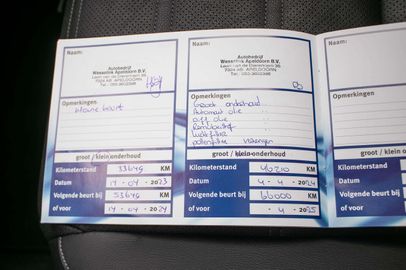 Naam:
Autobedrijf
Wesselink Apeldoorn B.V.
Opmerkingen
Kleine beurt
groot / klein onderhoud
Kilometerstand 33649 KM
Datum 14 - 04 - 2023
Volgende beurt bij 53649 KM
of voor 14 - 04 - 2024
Naam:
Autobedrijf
Wesselink Apeldoorn B.V.
Opmerkingen
Groot onderhoud
Automaat olie
Remvloeistof
Luchtfilter
pollenfilter vervangen
groot / klein onderhoud
Kilometerstand 46210 KM
Datum 4 - 4 - 2024
Volgende beurt bij 66000 KM
of voor - 4 - 2025
Naam:
Opmerkingen
groot / k
Kilometerstand
Datum
Volgende beurt
of voor